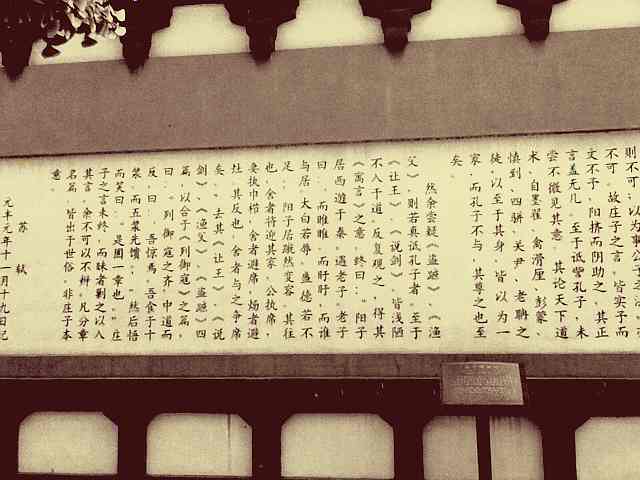 则不可；以为事公之
不可。故庄子之言，皆实予而
文不予，阳挤而阴助之，其正
言盖无几。至于诋訾孔子，未
尝不微见其意。其论天下道
术，自墨翟、禽滑厘、彭蒙、
慎到、四骈、关尹、老聃之
徒，以至于其身，皆以为一
家，而孔子不与，其尊之也至
矣。
然余尝疑《盗跖》、《渔
父》，则若真诋孔子者，至于
《让王》、《说剑》，皆浅陋
不入于道。反复观之，得其
《寓言》之意，终曰：“阳子
居西游于秦，遇老子。老子
曰：而睢睢，而盱盱，而谁
与居。太白若辱，盛德若不
足。阳子居蹴然变容。其往
也，舍者将迎其家，公执席，
妻执巾栉，舍者避席，炀者避
灶。其反也，舍者与之争席
矣。”去其《让王》、《说
剑》、《渔父》、《盗跖》四
篇，以合于《列御寇》之篇，
曰：“列御寇之齐，中道而
反，曰：吾惊焉，吾食于十
浆，而五浆先馈。”然后悟
而笑曰：“是固一章也。”庄
子之言未终，而昧者剿之以入
其言。余不可以不辨。凡分章
名篇，皆出于世俗，非庄子本
意。
苏 轼
元丰元年十一月十九日记